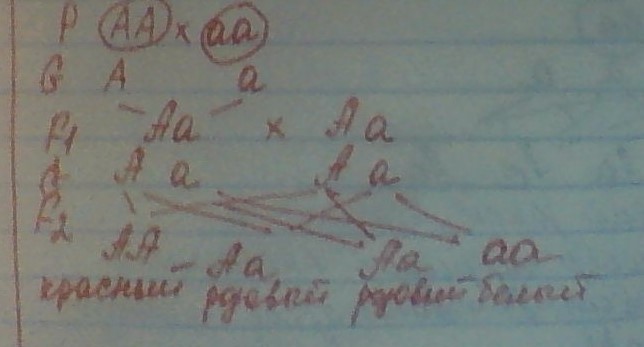 P AA x aa
G A a
F1 Aa x Aa
G A a A a
F2
AA Aa Aa aa
красный розовый розовый белый